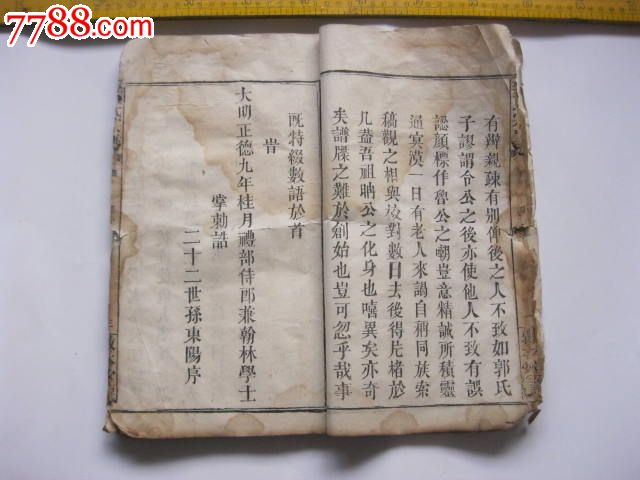 7788.com
有辨親疎有别俾後之人不致如郭氏
子謬謂令公之後亦使他人不致有誤
認顔標作魯公之嘲豈意精誠所積靈
通㝠漠一日有老人來謁自稱同族索
稿觀之相與校對數日去後得片楮於
几盖吾祖昞公之化身也嘻異矣亦奇
矣譜牒之難於創始也豈可忽乎哉事
既特綴數語於首
旹
大明正德九年桂月禮部侍郎兼翰林學士
掌勅誥
二十二世孫東陽序